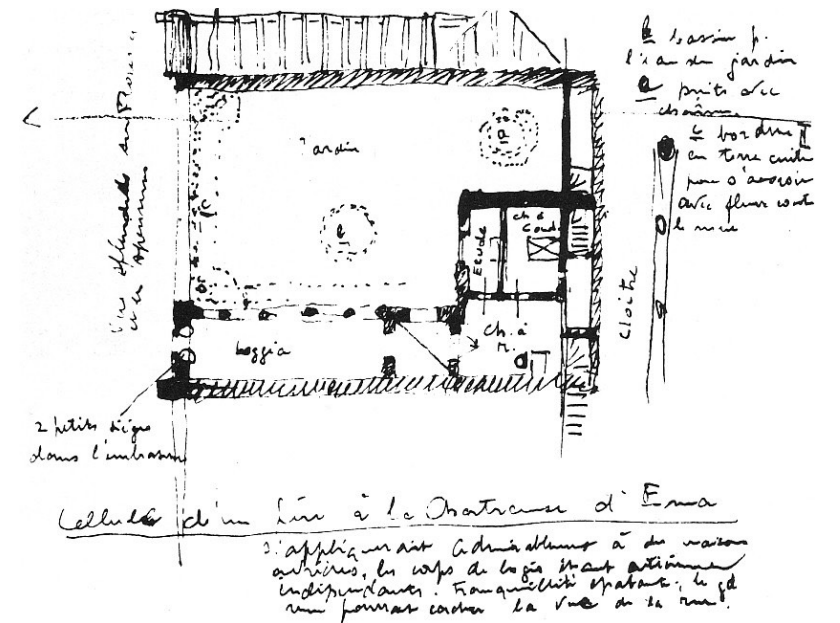 b bassin p.
l'eau du jardin
a puits avec
chaîne
c bordure
en terre cuite
pour s'asseoir
avec fleurs contre
le mur
Vue splendide sur Florence
Jardin
b
a
c
Etude
ch à
Coucher
Cloître
Loggia
Ch. à
M.
2 petits sièges
dans l'embrasure
Cellule d'un Père à la Chartreuse d'Ema
S'appliquerait admirablement à des maisons
ouvrières, les corps de logis étant entièrement
indépendants. Tranquillité épatante, le gd
mur pourrait cacher la vue de la rue.